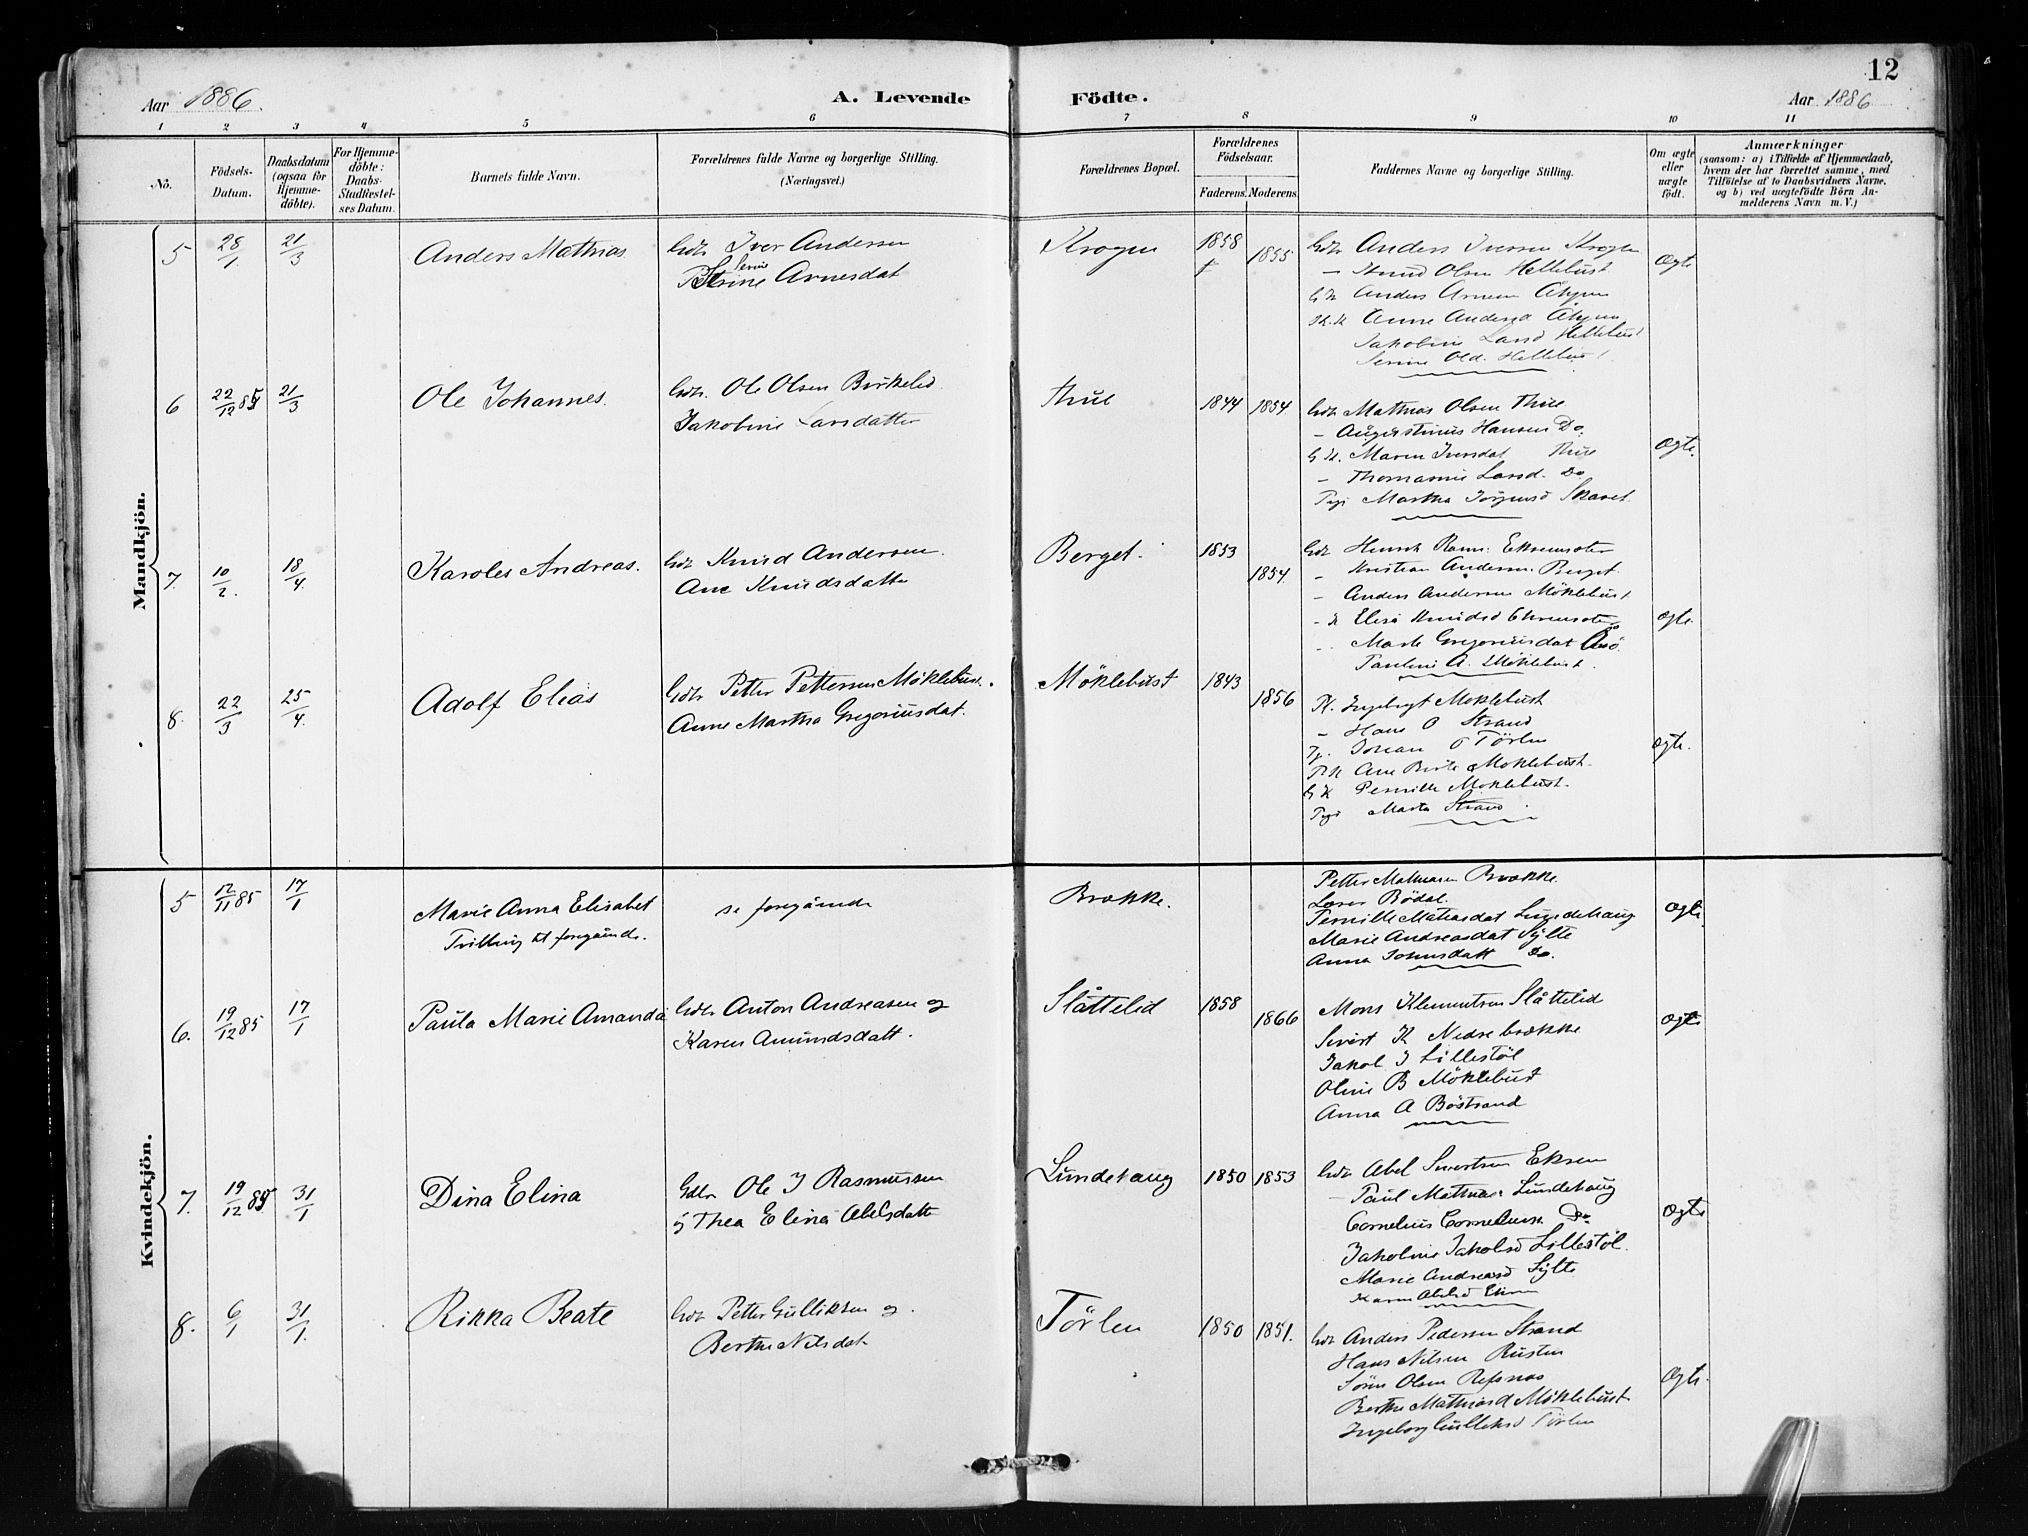 12
Aar 1886.
A. Levende
Födte.
Aar 1886
1 2 3 4 5 6 7 8 9 10 11
No.
Födsels-
Datum.
Daabsdatum
(ogsaa for
Hjemme-
döbte).
For Hjemme-
döbte:
Daabs-
Stadfæstel-
ses Datum.
Barnets fulde Navn.
Forældrenes fulde Navne og borgerlige Stilling.
(Næringsvei.)
Forældrenes Bopæl.
Forældrenes
Födselsaar.
Faderens. Moderens.
Faddernes Navne og borgerlige Stilling.
Om ægte
eller
uægte
födt.
Anmærkninger
(saasom: a) i Tilfælde af Hjemmedaab,
hvem der har forrettet samme, med
Tilföielse af to Daabsvidners Navne,
og b) ved uægtefödte Börn An-
melderens Navn m. V.)
Mandkjön.
5 28/1 21/3 Anders Mathias Gdr Iver Andersen
Serine
Arnesdat
Krogen 1858 1855
Gdr Anders Iversen Krogen
– Knud Olsen Hellebust
Anders Arnesen
Anne Andersd
Jakobine Larsd Hellebust
Serine Olsd. Hellebust
Ægte
6 22/12 85 21/3 Ole Johannes. Gdr. Ole Olsen Birkelid
Jakobine Larsdatter
Thue 1844 1854
Gdr Mathias Olsen Thue
– Augustinus Hansen Do.
G K. Maren Iversdat Thue
– Thomasine Larsd. Do
Pige Martha Jörgensd Skaret
Ægte.
7. 10/2. 18/4 Karoles Andreas. Gdr Knud Andersen.
Ane Knudsdatter
Berget. 1853 1854
Gdr Henrik Rasm. Eksensæter
– Kristian Andersen Berget
– Anders Andersen Möklebust
– K Elise Knudsd
Marte Gregoriusdat
Pauline A. Möklebust.
ægte
8. 22/3 25/4. Adolf Elias Gdr Petter Pettersen Möklebust.
Anne Martha Gregoriusdat.
Möklebust 1843 1856
Pl. Ingebregt Moklebust
– Hans O Strand
Johan O Törlen
Ane Birte Moklebust.
G K Pernille Moklebust.
Pige Marta Strand
ægte.
Kvindekjön.
5 12/11 85 17/1 Marie Anna Elisabet se foregåinde
Tvilling til foregåinde.
Brække.
Petter Mathiasen Brække
Lars Bödal.
Pernille Mathiasdat Lundehaug
Marie Andreasdat Sylte
Anna Johnsdatt Do.
Ægte.
6. 19/12 85 17/1 Paula Marie Amanda Gdr Anton Andreasen og
Karen Amundsdatt.
Slåttelid 1858 1866
Mons Klementsen Slåttelid
Sivert K Nedrebrække
Jakob J Lillestöl
Oline B Möklebust
Anna A Böstrand
Ægte
7. 19/12 85 31/1 Dina Elina Gdr Ole J Rasmussen
og Thea Elina Abelsdatter
Lundehaug 1850 1853
Gdr Abel Sivertsen Eksen
– Paul Mathias. Lundehaug
Cornelius Corneliuss. Do
Jakobine Jakobsd Lillestöl.
Marie Andreasd Sylte
Karen Abelsd Eksen
Ægte
8. 6/1 31/1. Rikka Beate Gdr Petter Gulliksen og.
Berthe Nilsdat
Törlen 1850 1851.
Gdr Anders Pedersen Strand
Hans Nilsen Rusten
Sören Olsen Refsnæs
Berthe Mathiasd Möklebust
Ingeborg Gulleksd Törlen
Ægte.